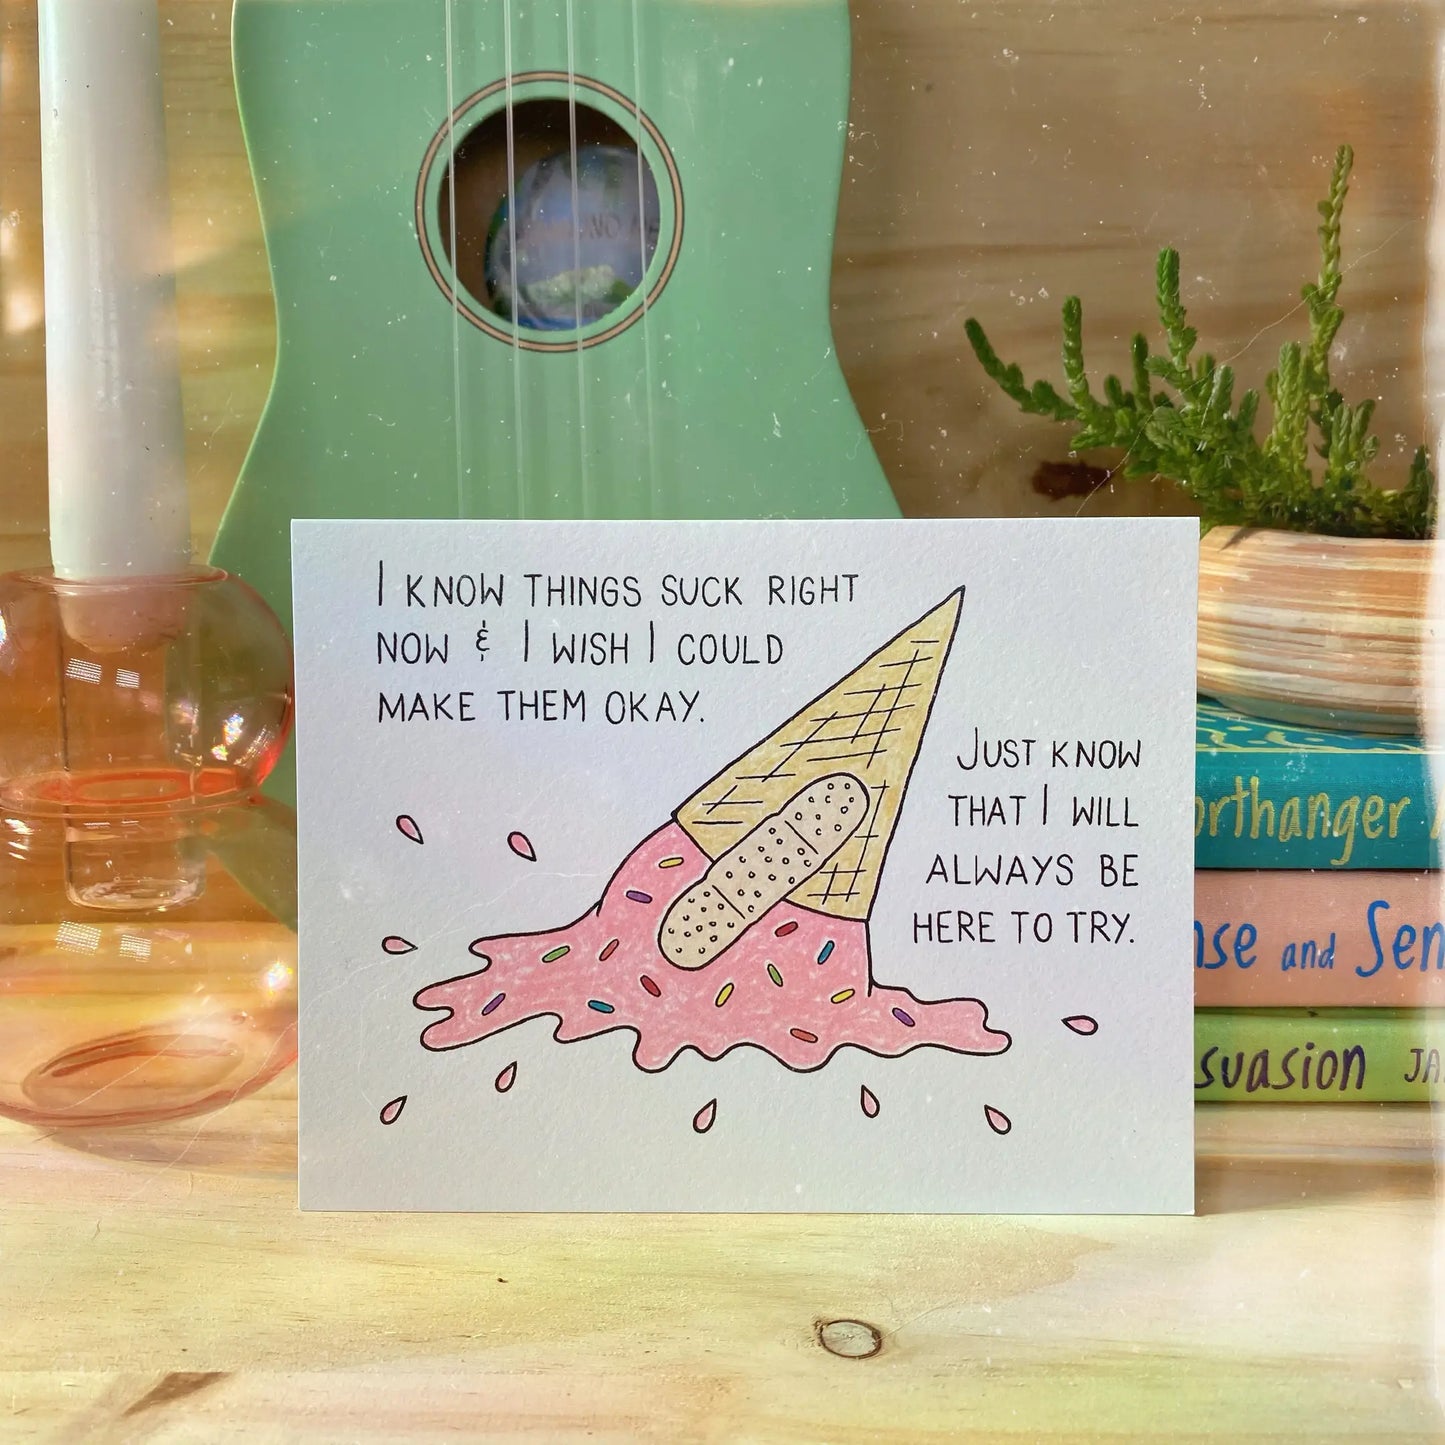 I KNOW THINGS SUCK RIGHT
NOW & I WISH I COULD
MAKE THEM OKAY.
JUST KNOW
THAT I WILL
ALWAYS BE
HERE TO TRY.
orthanger
nse and Sen
suasion JA